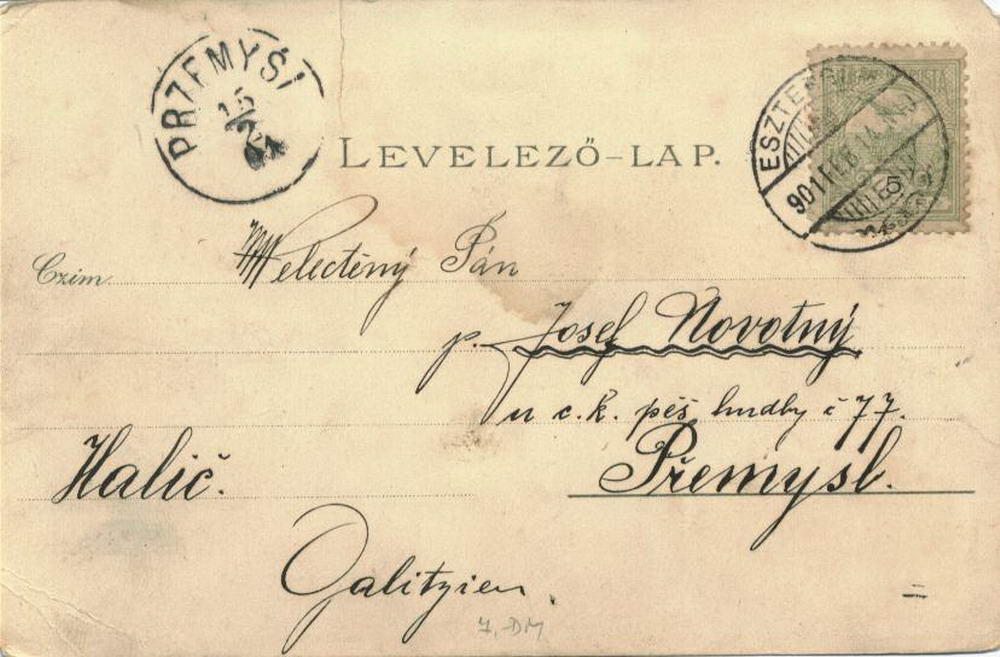 PRZEMYŚL
15/2
LEVELEZŐ-LAP.
ESZTERGOM
901 FEB 14
5
Czim
Velectěný Pán
p. Josef Novotný
u c. k. pěš hudby č 77.
Halič.
Přemysl.
Galitzien.